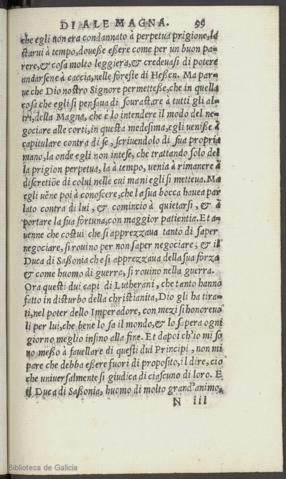 DI ALE MAGNA. 99
che egli non era condannato à perpetua prigione, lo
starui à tempo, douesse essere come per un buon pa-
rere, & cosa molto leggiera, & credeuasi di potere
andarsene à caccia, nelle foreste di Hessen. Ma par-
ue che Dio nostro Signore permettesse, che in quella
cosa che egli si pensaua di sourastare à tutti gli al-
tri, della Magna, che è lo intendere il modo del ne-
gociare alle corti, in questa medesima, egli uenisse à
capitulare contra di se, scriuendolo di sua propria
mano, la onde egli non intese, che trattando solo del
la prigion perpetua, la à tempo, uenia à rimanere à
discretiõe di colui nelle cui mani egli si metteua. Ma
egli uẽne poi à conoscere, che la sua bocca hauea par
lato contra di lui, & cominciò à quietarsi, & à
portare la sua fortuna, con maggior patientia. Et a-
uenne che costui che si apprezzaua tanto di saper
negociare, si rouino per non saper negociare; & il
Duca di Sassonia che si apprezzaua della sua forza
& come huomo di guerra, si rouino nella guerra.
Ora questi dui capi di Lutherani, che tanto hanno
fatto in disturbo della christianita, Dio gli ha tira-
ti, nel poter dello Imperadore, con mezi si honoreuo
li per lui, che bene lo sa il mondo, & lo sapera ogni
giorno meglio insino alla fine. Et dapoi ch'io mi so
no messo à fauellare di questi dui Principi, non mi
pare che debba essere fuori di proposito, il dire, cio
che uniuersalmente si giudica di ciascuno di loro. E
il Duca di Sassonia, huomo di molto grand'animo,
N iii
Biblioteca de Galicia